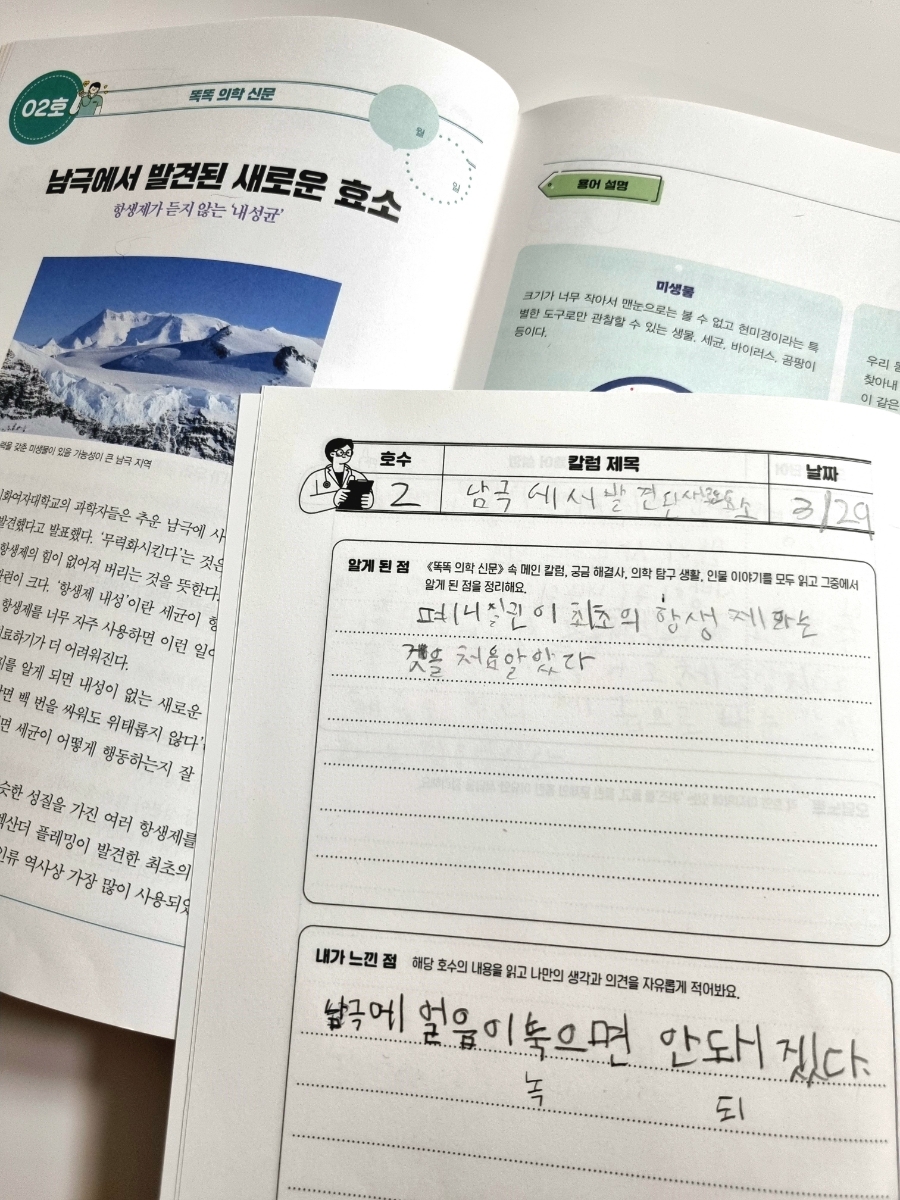 02호
똑똑 의학 신문
월
일
남극에서 발견된 새로운 효소
항생제가 듣지 않는 '내성균'
갖춘 미생물이 있을 가능성이 큰 남극 지역
과학자들은 추운 남극에 사
발견했다고 발표했다. '무력화시킨다'는 것은
항생제의 힘이 없어져 버리는 것을 뜻한다.
크다. '항생제 내성'이란 세균이 항
항생제를 너무 자주 사용하면 이런 일이
더 어려워진다.
알게 되면 내성이 없는 새로운
백 번을 싸워도 위태롭지 않다'
세균이 어떻게 행동하는지 잘
성질을 가진 여러 항생제를
플레밍이 발견한 최초의
인류 역사상 가장 많이 사용되었
용어 설명
미생물
크기가 너무 작아서 맨눈으로는 볼 수 없고 현미경이라는 특
별한 도구로만 관찰할 수 있는 생물. 세균, 바이러스, 곰팡이
등이다.
우리 몸
찾아내
이 같은
호수 칼럼 제목 날짜
2 남극에서 발견된 새로운 효소 3/29
알게 된 점 《똑똑 의학 신문》 속 메인 칼럼, 궁금 해결사, 의학 탐구 생활, 인물 이야기를 모두 읽고 그중에서
알게 된 점을 정리해요.
페니실린이 최초의 항생제라는
것을 처음알았다
내가 느낀 점 해당 호수의 내용을 읽고 나만의 생각과 의견을 자유롭게 적어봐요.
남극에 얼음이 눅으면 안돼겠다.
녹 되